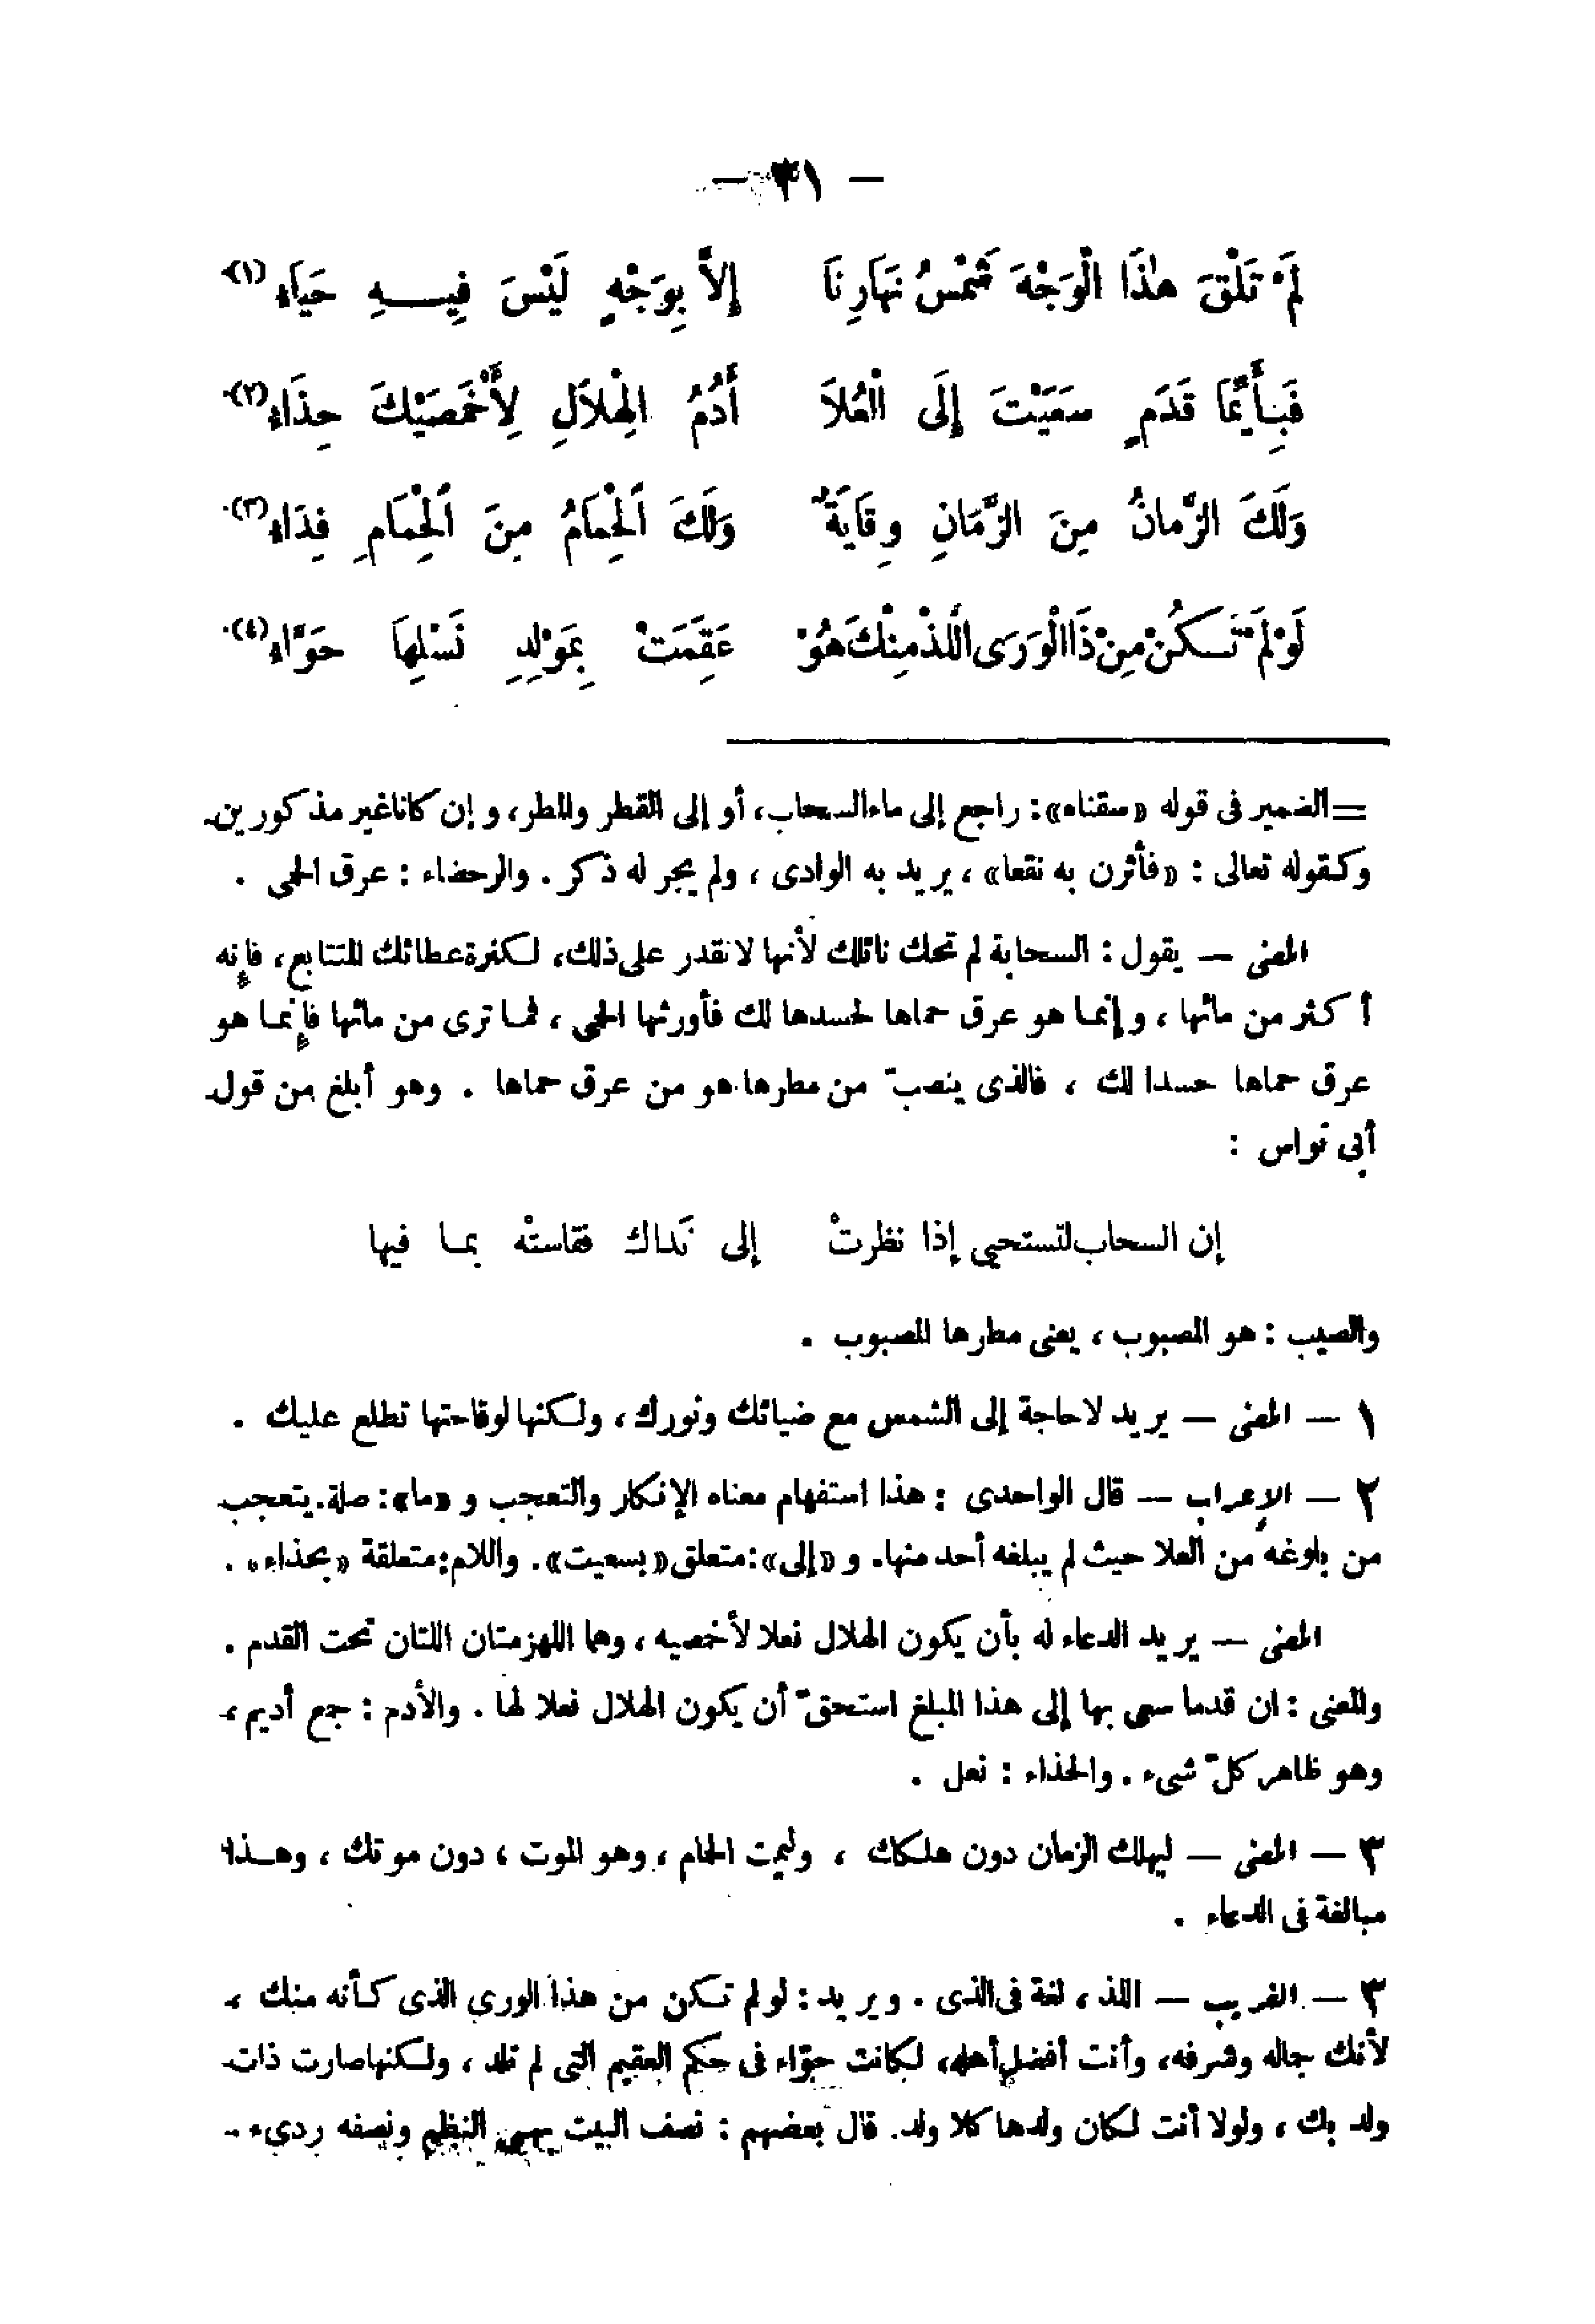 — ٣١ —
لَمْ تَلْقَ هٰذَا الْوَجْهَ شَمْسُ نَهَارِنَا إِلاَّ بِوَجْهٍ لَيْسَ فِيـــهِ حَيَاءُ (١)
فَبِأَيِّمَا قَدَمٍ سَعَيْتَ إِلَى الْعُلاَ أُدُمُ الْهِلاَلِ لِأَخْمَصَيْكَ حِذَاءُ (٢)
وَلَكَ الزَّمانُ مِنَ الزَّمَانِ وِقَايَةٌ وَلَكَ اَلْحِمَامُ مِنَ اَلْحِمَامِ فِدَاءُ (٣)
لَوْ لَمْ تَكُنْ مِنْ ذَا الْوَرَى اللَّذْ مِنْكَ هُوْ عَقِمَتْ بِمَوْلِدِ نَسْلِهاَ حَوَّاءُ (٤)
= الضمير فى قوله «سقناه»: راجع إلى ماء السحاب، أو إلى القطر والمطر، وإن كانا غير مذكورين
وكقوله تعالى : «فأثرن به نقعا» ، يريد به الوادى ، ولم يجر له ذكر . والرحضاء : عرق الحمى .
المعنى — يقول : السحابة لم تحك نائلك لأنها لا تقدر على ذلك، لكثرة عطائك المتتابع، فإنه
أكثر من مائها ، وإنما هو عرق حماها لحسدها لك فأورثها الحمى ، فما ترى من مائها فإنما هو
عرق حماها حسدا لك ، فالذى ينصبّ من مطرها هو من عرق حماها . وهو أبلغ من قول
أبى نواس :
إن السحاب لتستحيى إذا نظرتْ إلى نَداك فقاستْه بما فيها
والصيب : هو المصبوب ، يعنى مطرها المصبوب .
١ — المعنى — يريد لا حاجة إلى الشمس مع ضيائك ونورك ، ولكنها لوقاحتها تطلع عليك .
٢ — الإعراب — قال الواحدى : هذا استفهام معناه الإنكار والتعجب و «ما»: صلة. يتعجب
من بلوغه من العلا حيث لم يبلغه أحد منها. و «إلى»: متعلق «بسعيت». واللام: متعلقة «بحذاء» .
المعنى — يريد الدعاء له بأن يكون الهلال نعلا لأخمصيه ، وهما اللهزمتان اللتان تحت القدم .
والمعنى : ان قدما سعى بها إلى هذا المبلغ استحقّ أن يكون الهلال نعلا لها . والأدم : جمع أديم ،
وهو ظاهر كلّ شىء . والحذاء : نعل .
٣ — المعنى — ليهلك الزمان دون هلاكك ، وليمت الحمام ، وهو الموت ، دون موتك ، وهذا
مبالغة فى الدعاء .
٣ — الغريب — اللذ ، لغة فى الذى . ويريد : لو لم تكن من هذا الورى الذى كأنه منك ،
لأنك جماله وشرفه، وأنت أفضل أهله، لكانت حوّاء فى حكم العقيم التى لم تلد ، ولكنها صارت ذات
ولد بك ، ولولا أنت لكان ولدها كلا ولد. قال بعضهم : نصف البيت بهى النظم ونصفه ردىء .